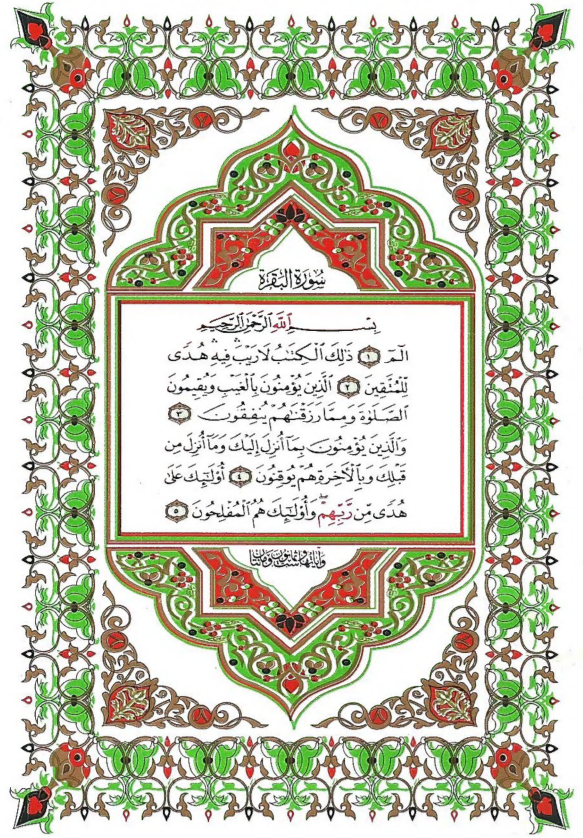 سُورَةُ البَقَرَةِ
بِسْمِ اللَّهِ الرَّحْمَٰنِ الرَّحِيمِ
الٓمٓ ١ ذَٰلِكَ الْكِتَٰبُ لَا رَيْبَ ۛ فِيهِ ۛ هُدًى
لِّلْمُتَّقِينَ ٢ الَّذِينَ يُؤْمِنُونَ بِالْغَيْبِ وَيُقِيمُونَ
الصَّلَوٰةَ وَمِمَّا رَزَقْنَٰهُمْ يُنفِقُونَ ٣
وَالَّذِينَ يُؤْمِنُونَ بِمَا أُنزِلَ إِلَيْكَ وَمَا أُنزِلَ مِن
قَبْلِكَ وَبِالْآخِرَةِ هُمْ يُوقِنُونَ ٤ أُو۟لَٰٓئِكَ عَلَىٰ
هُدًى مِّن رَّبِّهِمْ ۖ وَأُو۟لَٰٓئِكَ هُمُ الْمُفْلِحُونَ ٥
وآياتها ست وثمانون ومئتان